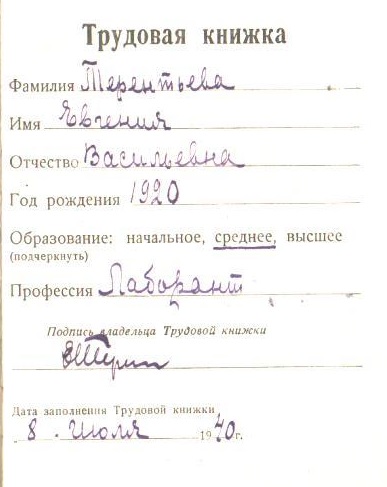 Трудовая книжка
Фамилия Терентьева
Имя Евгения
Отчество Васильевна
Год рождения 1920
Образование: начальное, среднее, высшее
(подчеркнуть)
Профессия Лаборант
Подпись владельца Трудовой книжки
Дата заполнения Трудовой книжки
8. Июля 1940г.